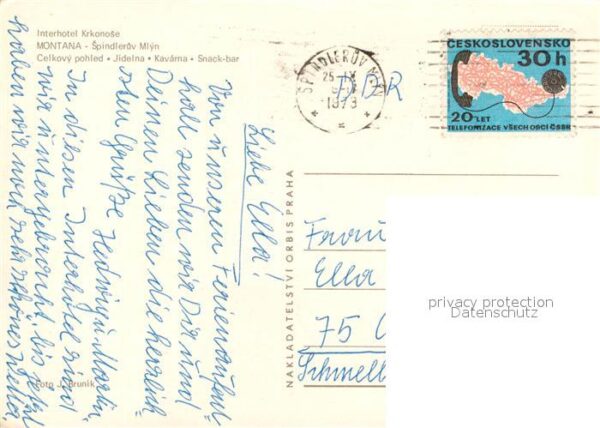 Interhotel Krkonoše
MONTANA - Špindlerův Mlýn
Celkový pohled • Jídelna • Kavárna • Snack-bar
ŠPINDLERŮV MLÝN
1973
DDR
ČESKOSLOVENSKO
30h
20 LET
TELEFONIZACE VŠECH OBCÍ ČSSR
Liebe Ella!
Von unserem Ferienaufent=
halt senden wir Dir und
Deinen Lieben die herzlich=
sten Grüße Hedwig u. Martin.
In diesem Interhotel sind
wir untergebracht. Bis jetzt
haben wir noch sehr schönes Wetter.
NAKLADATELSTVÍ ORBIS PRAHA
Ella
75
Foto J. Brunik
privacy protection
Datenschutz